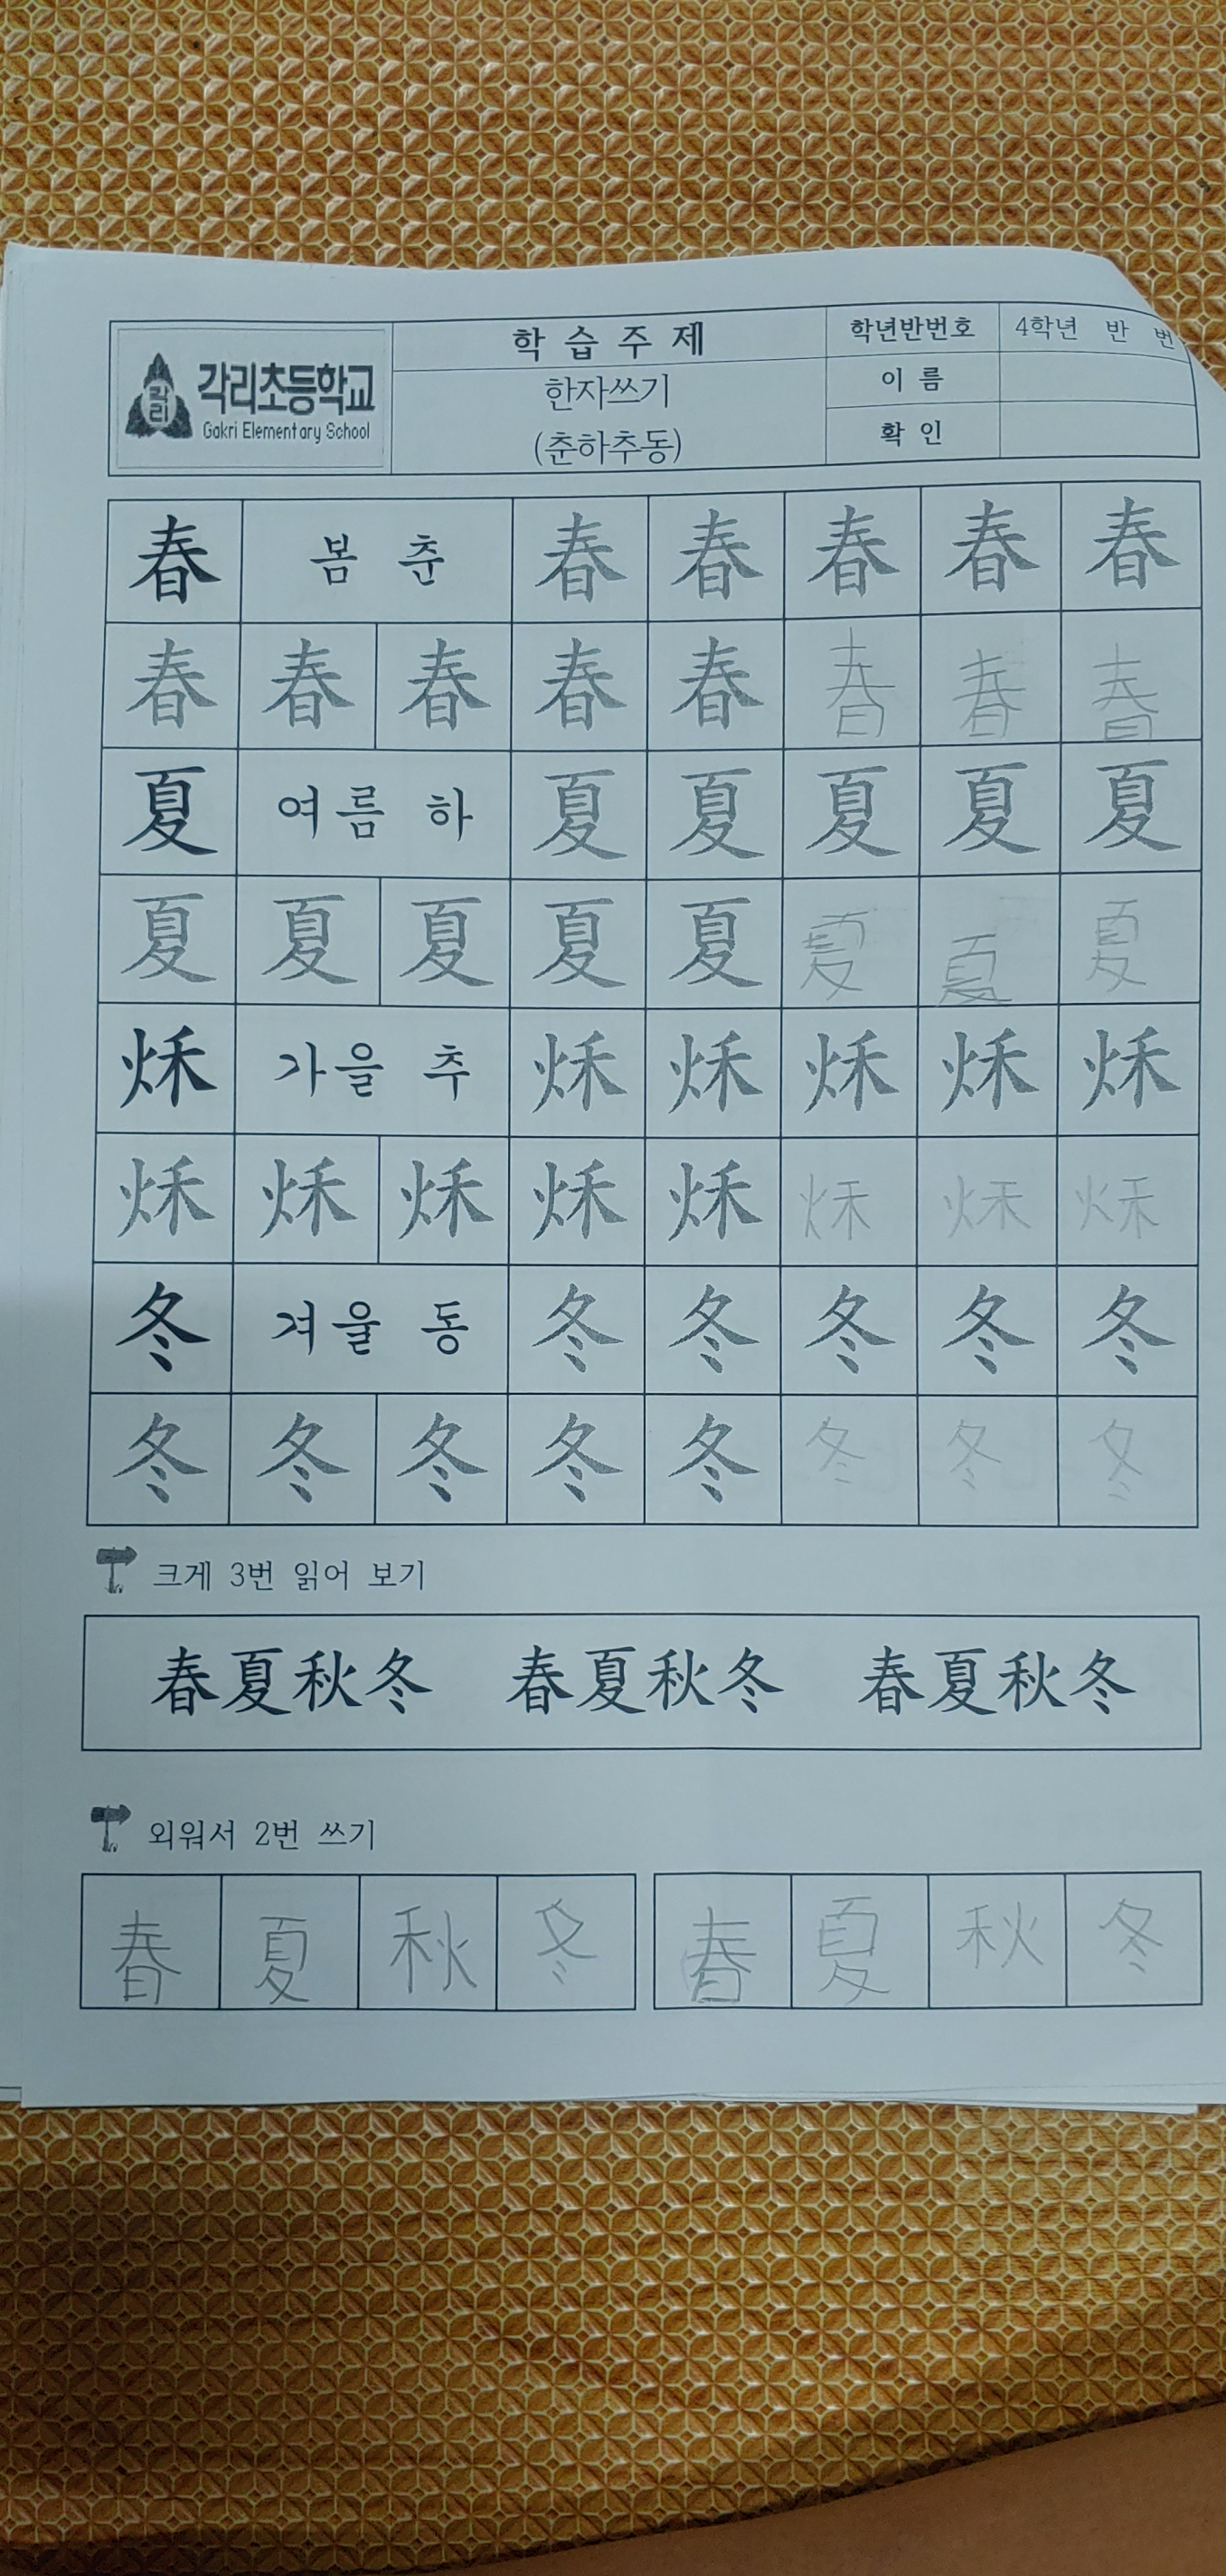 각리
각리초등학교
Gakri Elementary School
학습주제
한자쓰기
(춘하추동)
학년반번호 4학년 반 번
이름
확인
春 봄 춘 春 春 春 春 春
春 春 春 春 春 春 春 春
夏 여름 하 夏 夏 夏 夏 夏
夏 夏 夏 夏 夏 夏 夏 夏
秌 가을 추 秌 秌 秌 秌 秌
秌 秌 秌 秌 秌 秌 秌 秌
冬 겨울 동 冬 冬 冬 冬 冬
冬 冬 冬 冬 冬 冬 冬 冬
크게 3번 읽어 보기
春夏秋冬 春夏秋冬 春夏秋冬
외워서 2번 쓰기
春 夏 秋 冬 春 夏 秋 冬